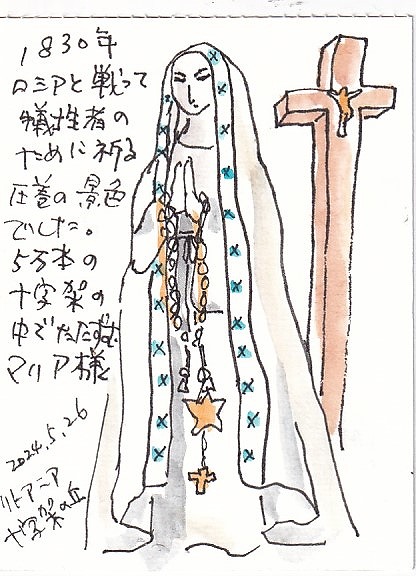 1830年
ロシアと戦って
犠牲者の
ために祈る
圧巻の景色
でした。
5万本の
十字架の
中でたたずむ
マリア様
2024.5.26
リトアニア
十字架の丘